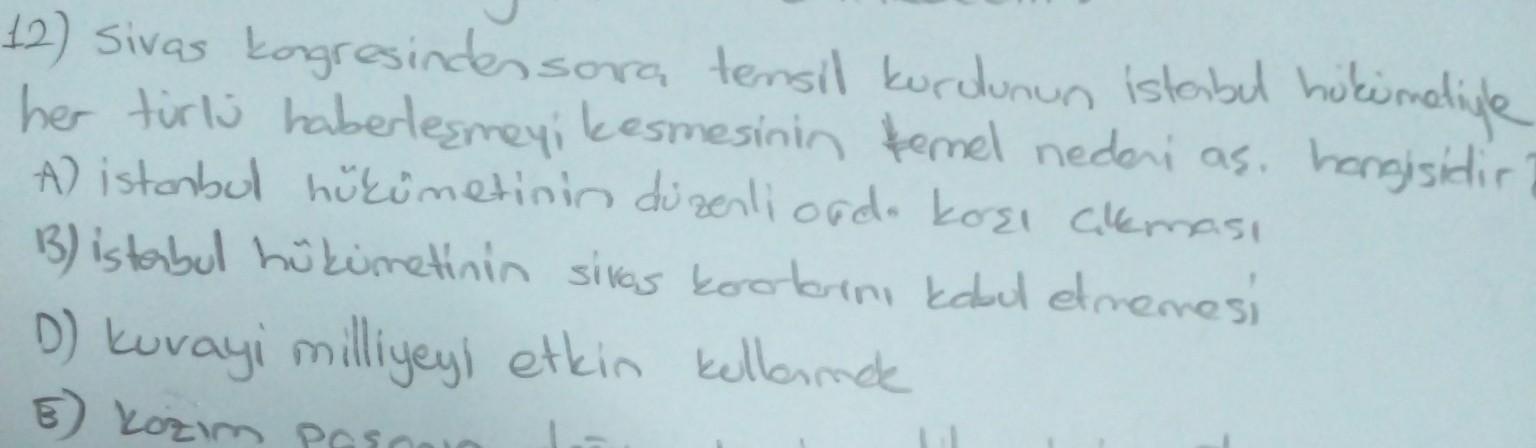 12) Sivas kongresinden sonra temsil kurulunun istanbul hükümetiyle
her türlü haberleşmeyi kesmesinin temel nedeni aş. hangisidir?
A) istanbul hükümetinin düzenli ord. karşı çıkması
B) istanbul hükümetinin sivas kararlarını kabul etmemesi
D) kuvayi milliyeyi etkin kullanmak
E) kazım paşanın